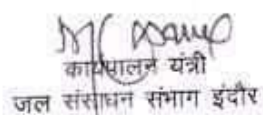 कार्यपालन यंत्री
जल संसाधन संभाग इंदौर